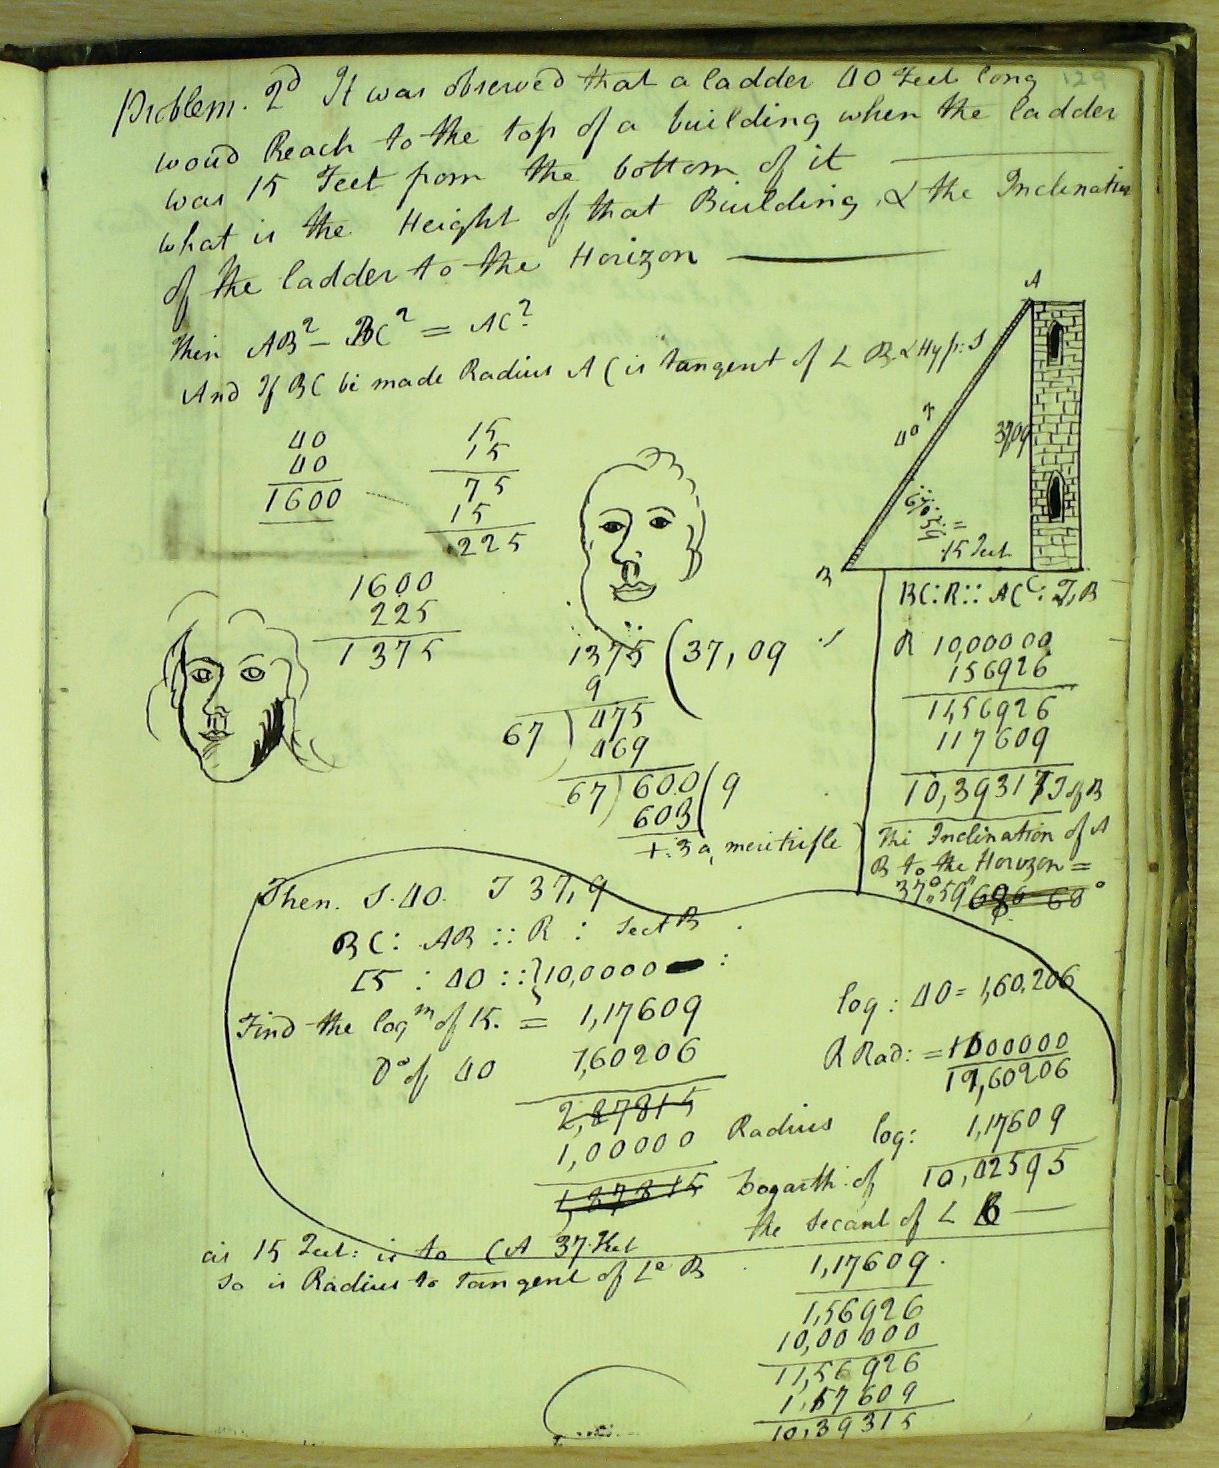 Problem. 2d It was observed that a ladder 40 Feet long
woud Reach to the top of a building when the ladder
was 15 Feet from the bottom of it
what is the Height of that Building & the Inclination
of the ladder to the Horizon
A
Then AB² – BC² = AC²
And If BC be made Radius AC is tangent of L B & Hyp: S
40 F
37,09
15 Feet
B
C
40
40
1600
15
15
75
15
225
1600
225
1375
1375 ( 37,09
9
67 ) 475
469
67 ) 600 ( 9
603
+.3 a, mere trifle
BC:R:: AC: T,B
R 10,00000
156926
11,56926
117609
10,39317 T of B
The Inclination of A
B to the Horizon =
37°.59
Then. S.40. T 37,9
BC: AB :: R : Sect B
15 : 40 :: 10,0000 :
Find the logm of 15. = 1,17609
Do of 40 1,60206
2,87815
1,00000 Radius
log: 40 = 1,60,206
R Rad: = 1000000
11,60206
log: 1,17609
Logarth. of 10,42595
the Secant of L B
as 15 Feet: is to CA 37 Feet
So is Radius to Tangent of Le B
1,17609.
1,56926
10,00000
11,56926
1,17609
10,39315